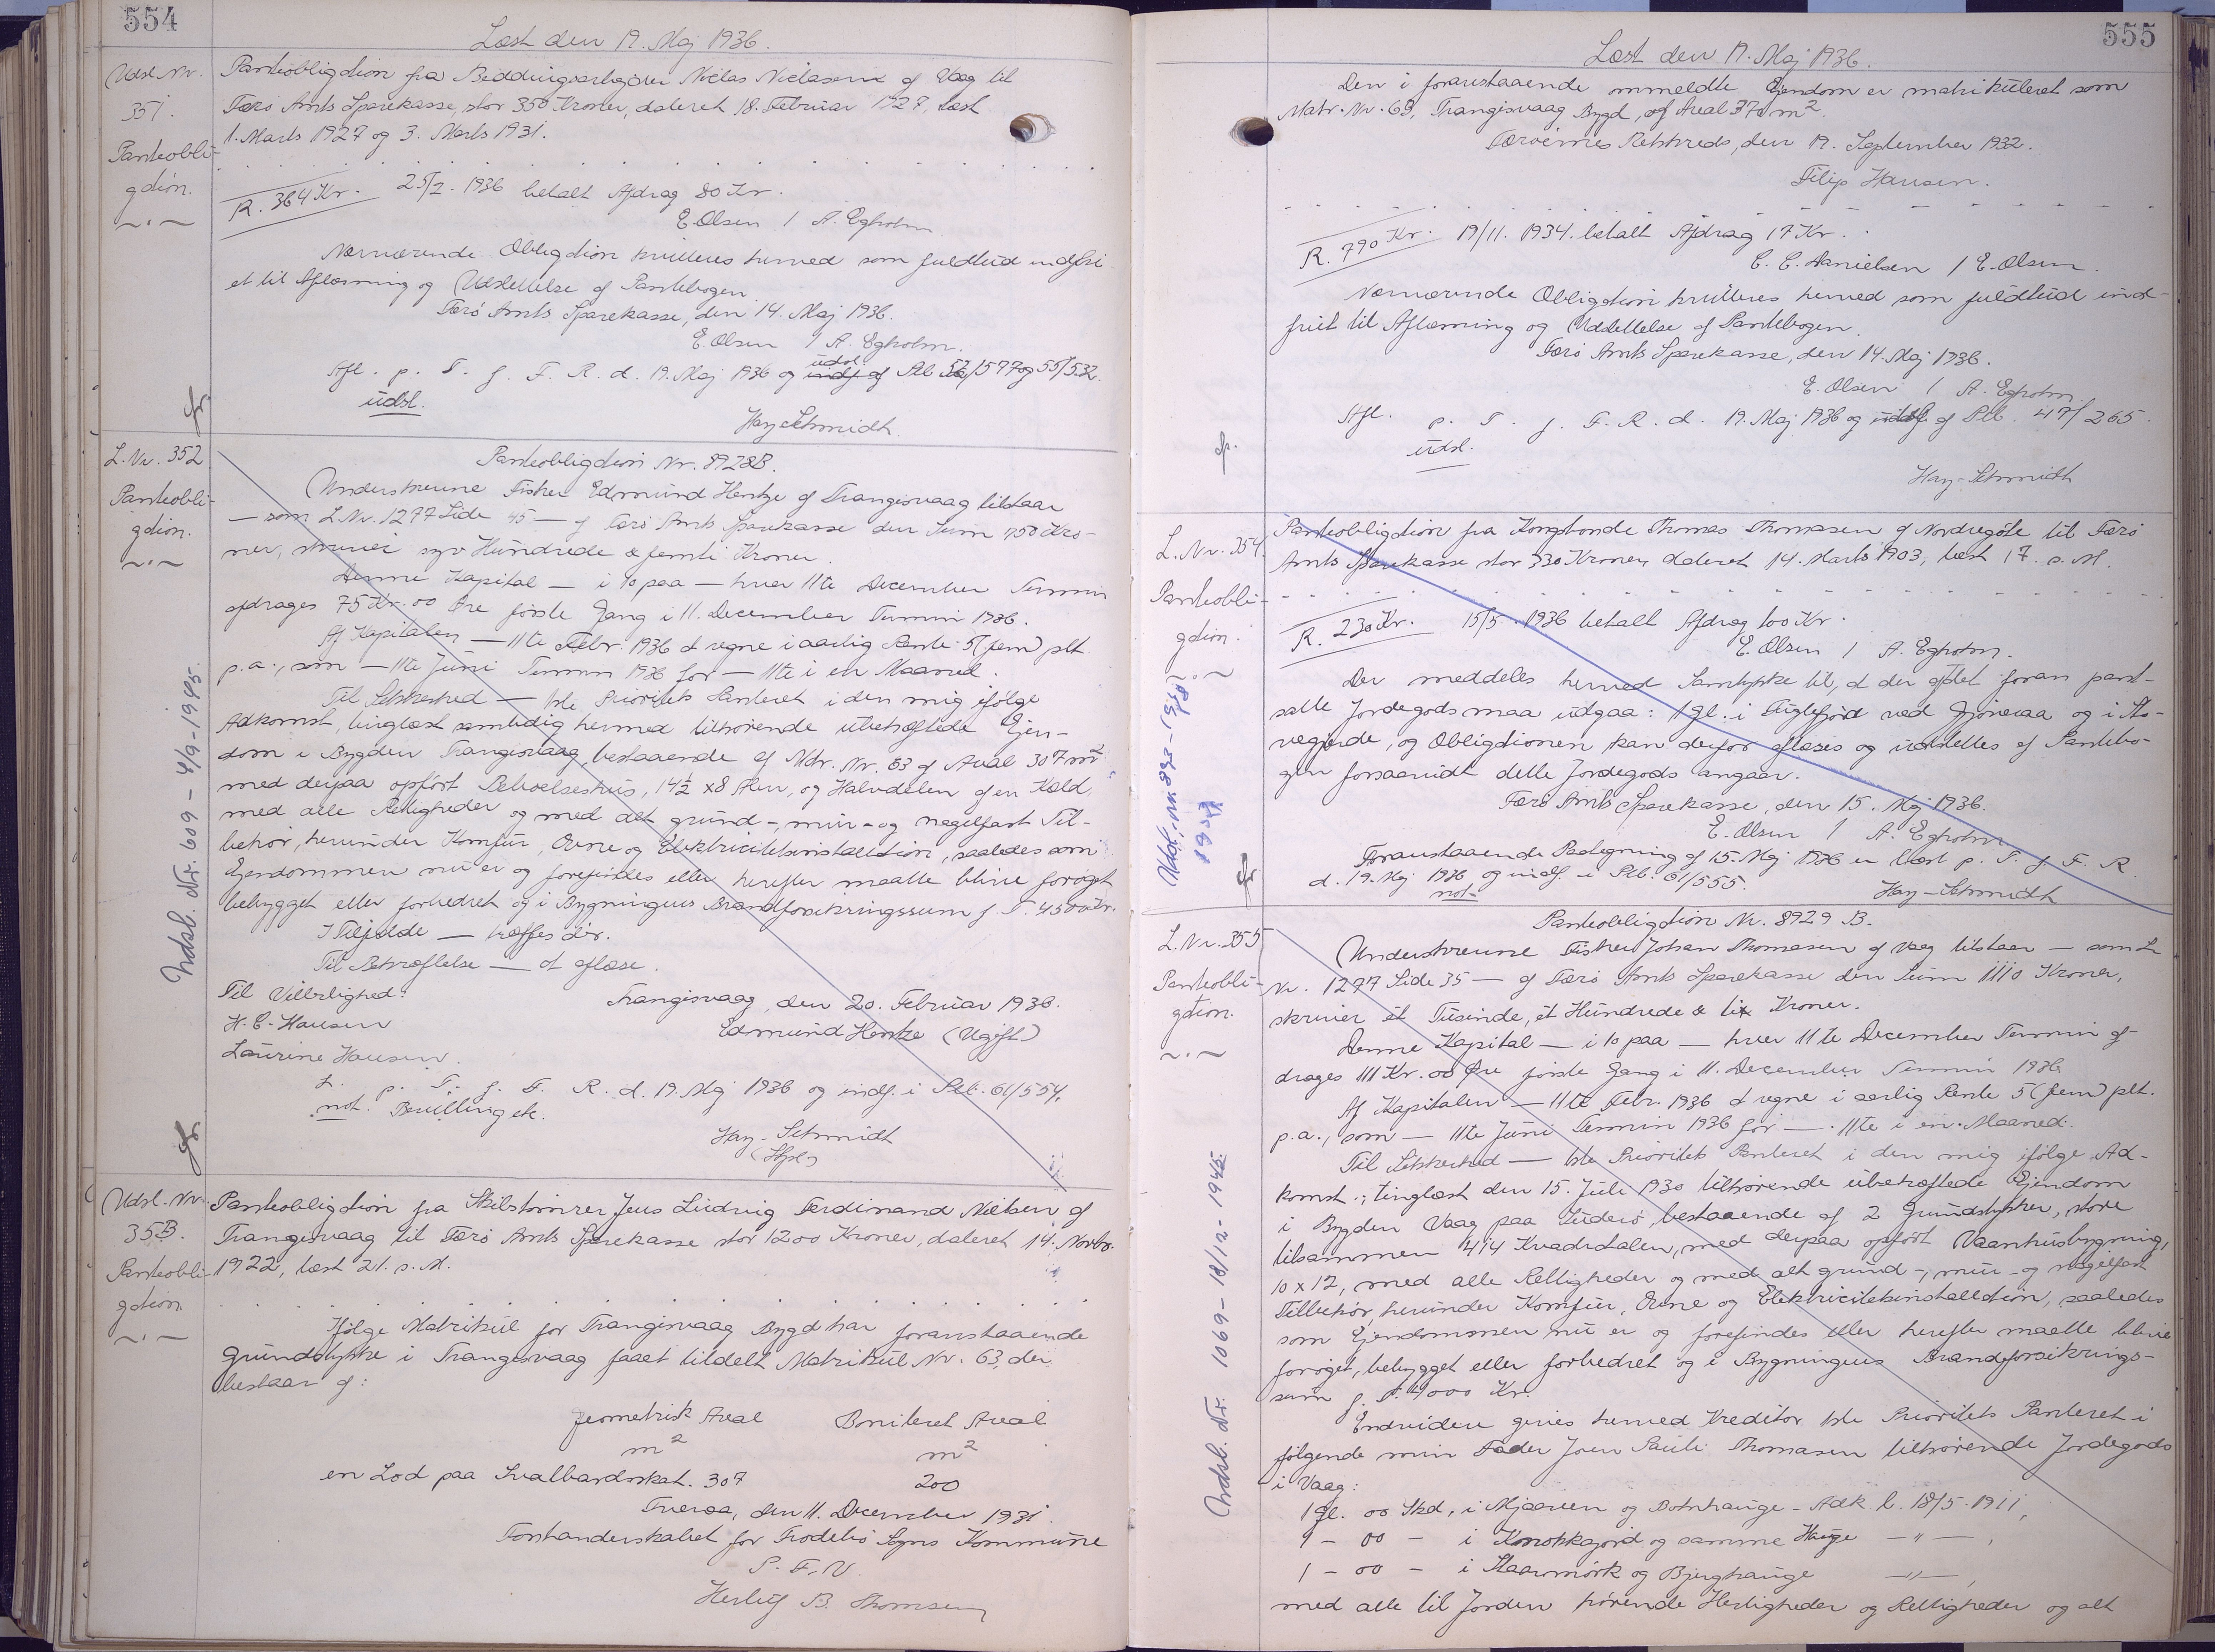 554
Læst den 19. Maj 1936.
Udsl. Nr.
351.
Panteobli-
gation.
Panteobligation fra Beddingsarbejder Niclas Niclasen af Vaag til
Færø Amts Sparekasse, stor 350 Kroner, dateret 18. Februar 1927, læst
1. Marts 1927 og 3. Marts 1931.
R. 364 Kr. 25/2. 1936 betalt Afdrag 80 Kr.
E. Olsen / A. Egholm
Nærværende Obligation kvitteres herved som fuldtud indfri
et til Aflæsning og Udslettelse af Pantebogen.
Færø Amts Sparekasse, den 14. Maj 1936.
E. Olsen / A. Egholm.
Afl. p. T. f. F. R. d. 19. Maj 1936 og udsl. af Pb. 52/577 og 55/532.
udsl.
Hay-Schmidt
L. Nr. 352
Panteobli-
gation.
Panteobligation Nr. 8928B.
Underskrevne Fisker Edmund Hentze af Trangisvaag tilstaar
— som L. Nr. 1277 Side 45 — af Færø Amts Sparekasse den Sum 750 Kro-
ner, skriver syv Hundrede & femti Kroner.
Denne Kapital — i 10 paa — hver 11te December Termin
afdrages 75 Kr. 00 Øre første Gang i 11. December Termin 1936.
Af Kapitalen — 11te Febr. 1936 at regne i aarlig Rente 5 (fem) pCt.
p.a., som — 11te Juni Termin 1936 for — 11te i en Maaned.
Til Sikkerhed — 1ste Prioritets Panteret i den mig ifølge
Adkomst, tinglæst samtidig hermed tilhørende ubehæftede Ejen-
dom i Bygden Trangisvaag, bestaaende af Matr. Nr. 63 af Areal 307 m²
med derpaa opført Beboelseshus, 14½ x 8 Alen, og Halvdelen af en Kæld,
med alle Rettigheder og med alt grund-, mur- og nagelfast Til-
behør, herunder Komfur, Ovne og Elektricitetsinstallation, saaledes som
Ejendommen nu er og forefindes eller herefter maatte blive forøget
bebygget eller forbedret og i Bygningens Brandforsikringssum f. T. 4500 Kr.
I Tilfælde — træffes dér.
Til Bekræftelse — at aflæse.
Trangisvaag, den 20. Februar 1936.
Til Vitterlighed:
H. C. Hansen
Edmund Hentze (Ugift)
Laurine Hansen.
L. p. T. f. F. R. d. 19. Maj 1936 og indf. i Pb. 61/554.
not. Bevilling etc.
Hay-Schmidt
Udsl. Nr. 609 - 4/9 - 1945.
Udsl. Nr.
353.
Panteobli-
gation.
Panteobligation fra Skibstømrer Jens Ludvig Ferdinand Nielsen af
Trangisvaag til Færø Amts Sparekasse stor 1200 Kroner, dateret 14. Novbr.
1922, læst 21. s. M.
Ifølge Matrikul for Trangisvaag Bygd har foranstaaende
Grundstykke i Trangisvaag faaet tildelt Matrikul Nr. 63, der
bestaar af:
geometrisk Areal Boniteret Areal
m² m²
en Lod paa Svalbardsskat. 307 200
Tveraa, den 11. December 1931.
Forstanderskabet for Frodebø Sogns Kommune
P. F. V.
Herluf B. Thomsen
555
Læst den 19. Maj 1936.
Den i foranstaaende ommeldte Ejendom er matrikuleret som
Matr. Nr. 63, Trangisvaag Bygd, af Areal 370 m².
Færøernes Retskreds, den 19. September 1932.
Filip Hansen.
R. 790 Kr. 19/11. 1934. betalt Afdrag 17 Kr.
C. C. Danielsen / E. Olsen.
Nærværende Obligation kvitteres herved som fuldtud ind-
friet til Aflæsning og Udslettelse af Pantebogen.
Færø Amts Sparekasse, den 14. Maj 1936.
E. Olsen / A. Egholm
Afl. p. T. f. F. R. d. 19. Maj 1936 og udsl. af Pb. 47/265.
udsl.
Hay-Schmidt
L. Nr. 354.
Panteobli-
gation.
Panteobligation fra Kongsbonde Thomas Thomasen af Nordregøte til Færø
Amts Sparekasse stor 330 Kroner, dateret 14. Marts 1903, læst 17. s. M.
R. 230 Kr. 15/5. 1936 betalt Afdrag 100 Kr.
E. Olsen / A. Egholm.
Der meddeles herved Samtykke til, at der af det foran pant-
satte Jordegods maa udgaa: 1 gl. i Fuglefjord ved Gjóvaraa og i
og Obligationen kan derfor aflæses og udslettes af Pantebo-
gen forsaavidt dette Jordegods angaar.
Færø Amts Sparekasse, den 15. Maj 1936.
E. Olsen / A. Egholm
Foranstaaende Paategning af 15. Maj 1936 er læst p. T. f. F. R.
d. 19. Maj 1936 og indf. i Pb. 61/555.
not.
Hay-Schmidt
L. Nr. 355
Panteobli-
gation.
Panteobligation Nr. 8929 B.
Underskrevne Fisker Johan Thomasen af Vaag tilstaar — som L
Nr. 1277 Side 35 — af Færø Amts Sparekasse den Sum 1110 Kroner,
skriver ét Tusinde, ét Hundrede & ti Kroner.
Denne Kapital — i 10 paa — hver 11te December Termin af-
drages 111 Kr. 00 Øre første Gang i 11. December Termin 1936.
Af Kapitalen — 11te Febr. 1936 at regne i aarlig Rente 5 (fem) pCt.
p.a., som — 11te Juni Termin 1936 for — 11te i en Maaned.
Til Sikkerhed — 1ste Prioritets Panteret i den mig ifølge Ad-
komst, tinglæst den 15. Juli 1930 tilhørende ubehæftede Ejendom
i Bygden Vaag paa Suderø, bestaaende af 2 Grundstykker, store
tilsammen 414 Kvadratalen, med derpaa opført Vaanhusbygning,
10 x 12, med alle Rettigheder og med alt grund-, mur- og nagelfast
Tilbehør, herunder Komfur, Ovne og Elektricitetsinstallation, saaledes
som Ejendommen nu er og forefindes eller herefter maatte blive
forøget, bebygget eller forbedret og i Bygningens Brandforsikrings-
sum f. T. 4000 Kr.
Endvidere gives herved Kreditor 1ste Prioritets Panteret i
følgende min Fader Joen Pauli Thomasen tilhørende Jordegods
i Vaag:
1 gl. 00 Skd, i Mjaaven og Botnhauge - Adk. l. 18/5. 1911,
1 - 00 - i Konokkagjord og samme Hauge — " — ,
1 - 00 - i og Bjerghauge — " — ,
med alle til Jorden hørende Herligheder og Rettigheder og alt
Udsl. Nr. 1069 - 18/12 - 1945